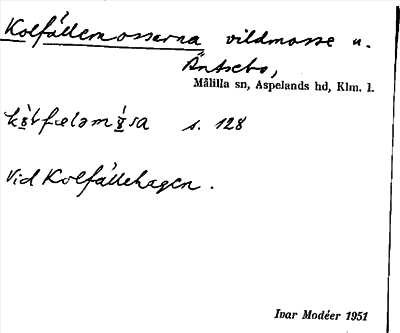 Kolfällemossarna vildmosse u.
Äntsebo,
Målilla sn, Aspelands hd, Klm. l.
s. 128
Vid Kolfällehagen.
Ivar Modéer 1951